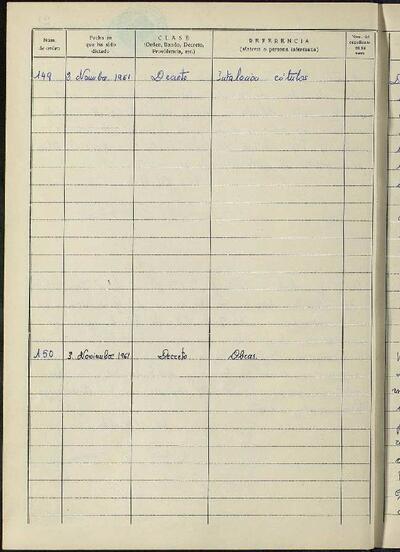 Núm. de orden
Fecha en que ha sido dictado
CLASE
(Orden, Bando, Decreto, Providencia, etc.)
REFERENCIA
(Materia o persona interesada)
Núm. del expediente
149 3. Novmbre 1961 Decreto
150 3. Noviembre 1961 Decreto Obras.